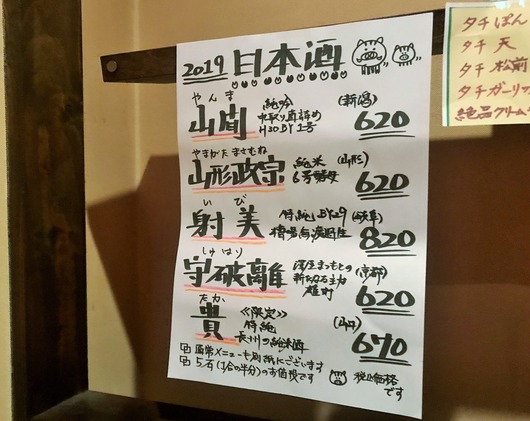 2019 日本酒
やんま
山間
純吟
中取り直詰め
H30BY 1号
(新潟)
620
やまがた まさむね
山形政宗
純米
6号酵母
(山形)
620
いび
射美
特純 BY29
槽場無濾過生
(岐阜)
820
しゅはり
守破離
澤屋まつもとの
新たなる主力
雄町
(京都)
620
たか
貴
≪限定≫
特純
長州の純米酒
(山口)
670
通常メニューも別紙にございます
5勺(1合の半分)のお値段です
税込価格
です
タチぽん
タチ 天
タチ 松前
タチガーリッ
絶品クリーム